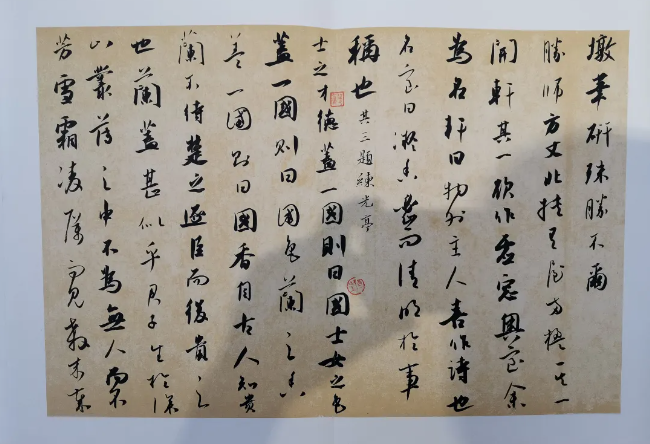 墩華研殊勝不爾
勝師方丈北挟有屋女楹其一
開軒其一欲作虛窓奧室余
為名軒曰物外主人喜作詩也
名室曰凝香蓋而清明於事
稱也其三題練光亭
士之才德蓋一國則曰國士女之色
蓋一國則曰國色蘭之香
蓋一國則曰國香自古人知貴
蘭不待楚之逐臣而後貴之
也蘭蓋甚似乎君子生於深
山叢薄之中不為無人而不
芳雪霜凌厲而見殺來歲